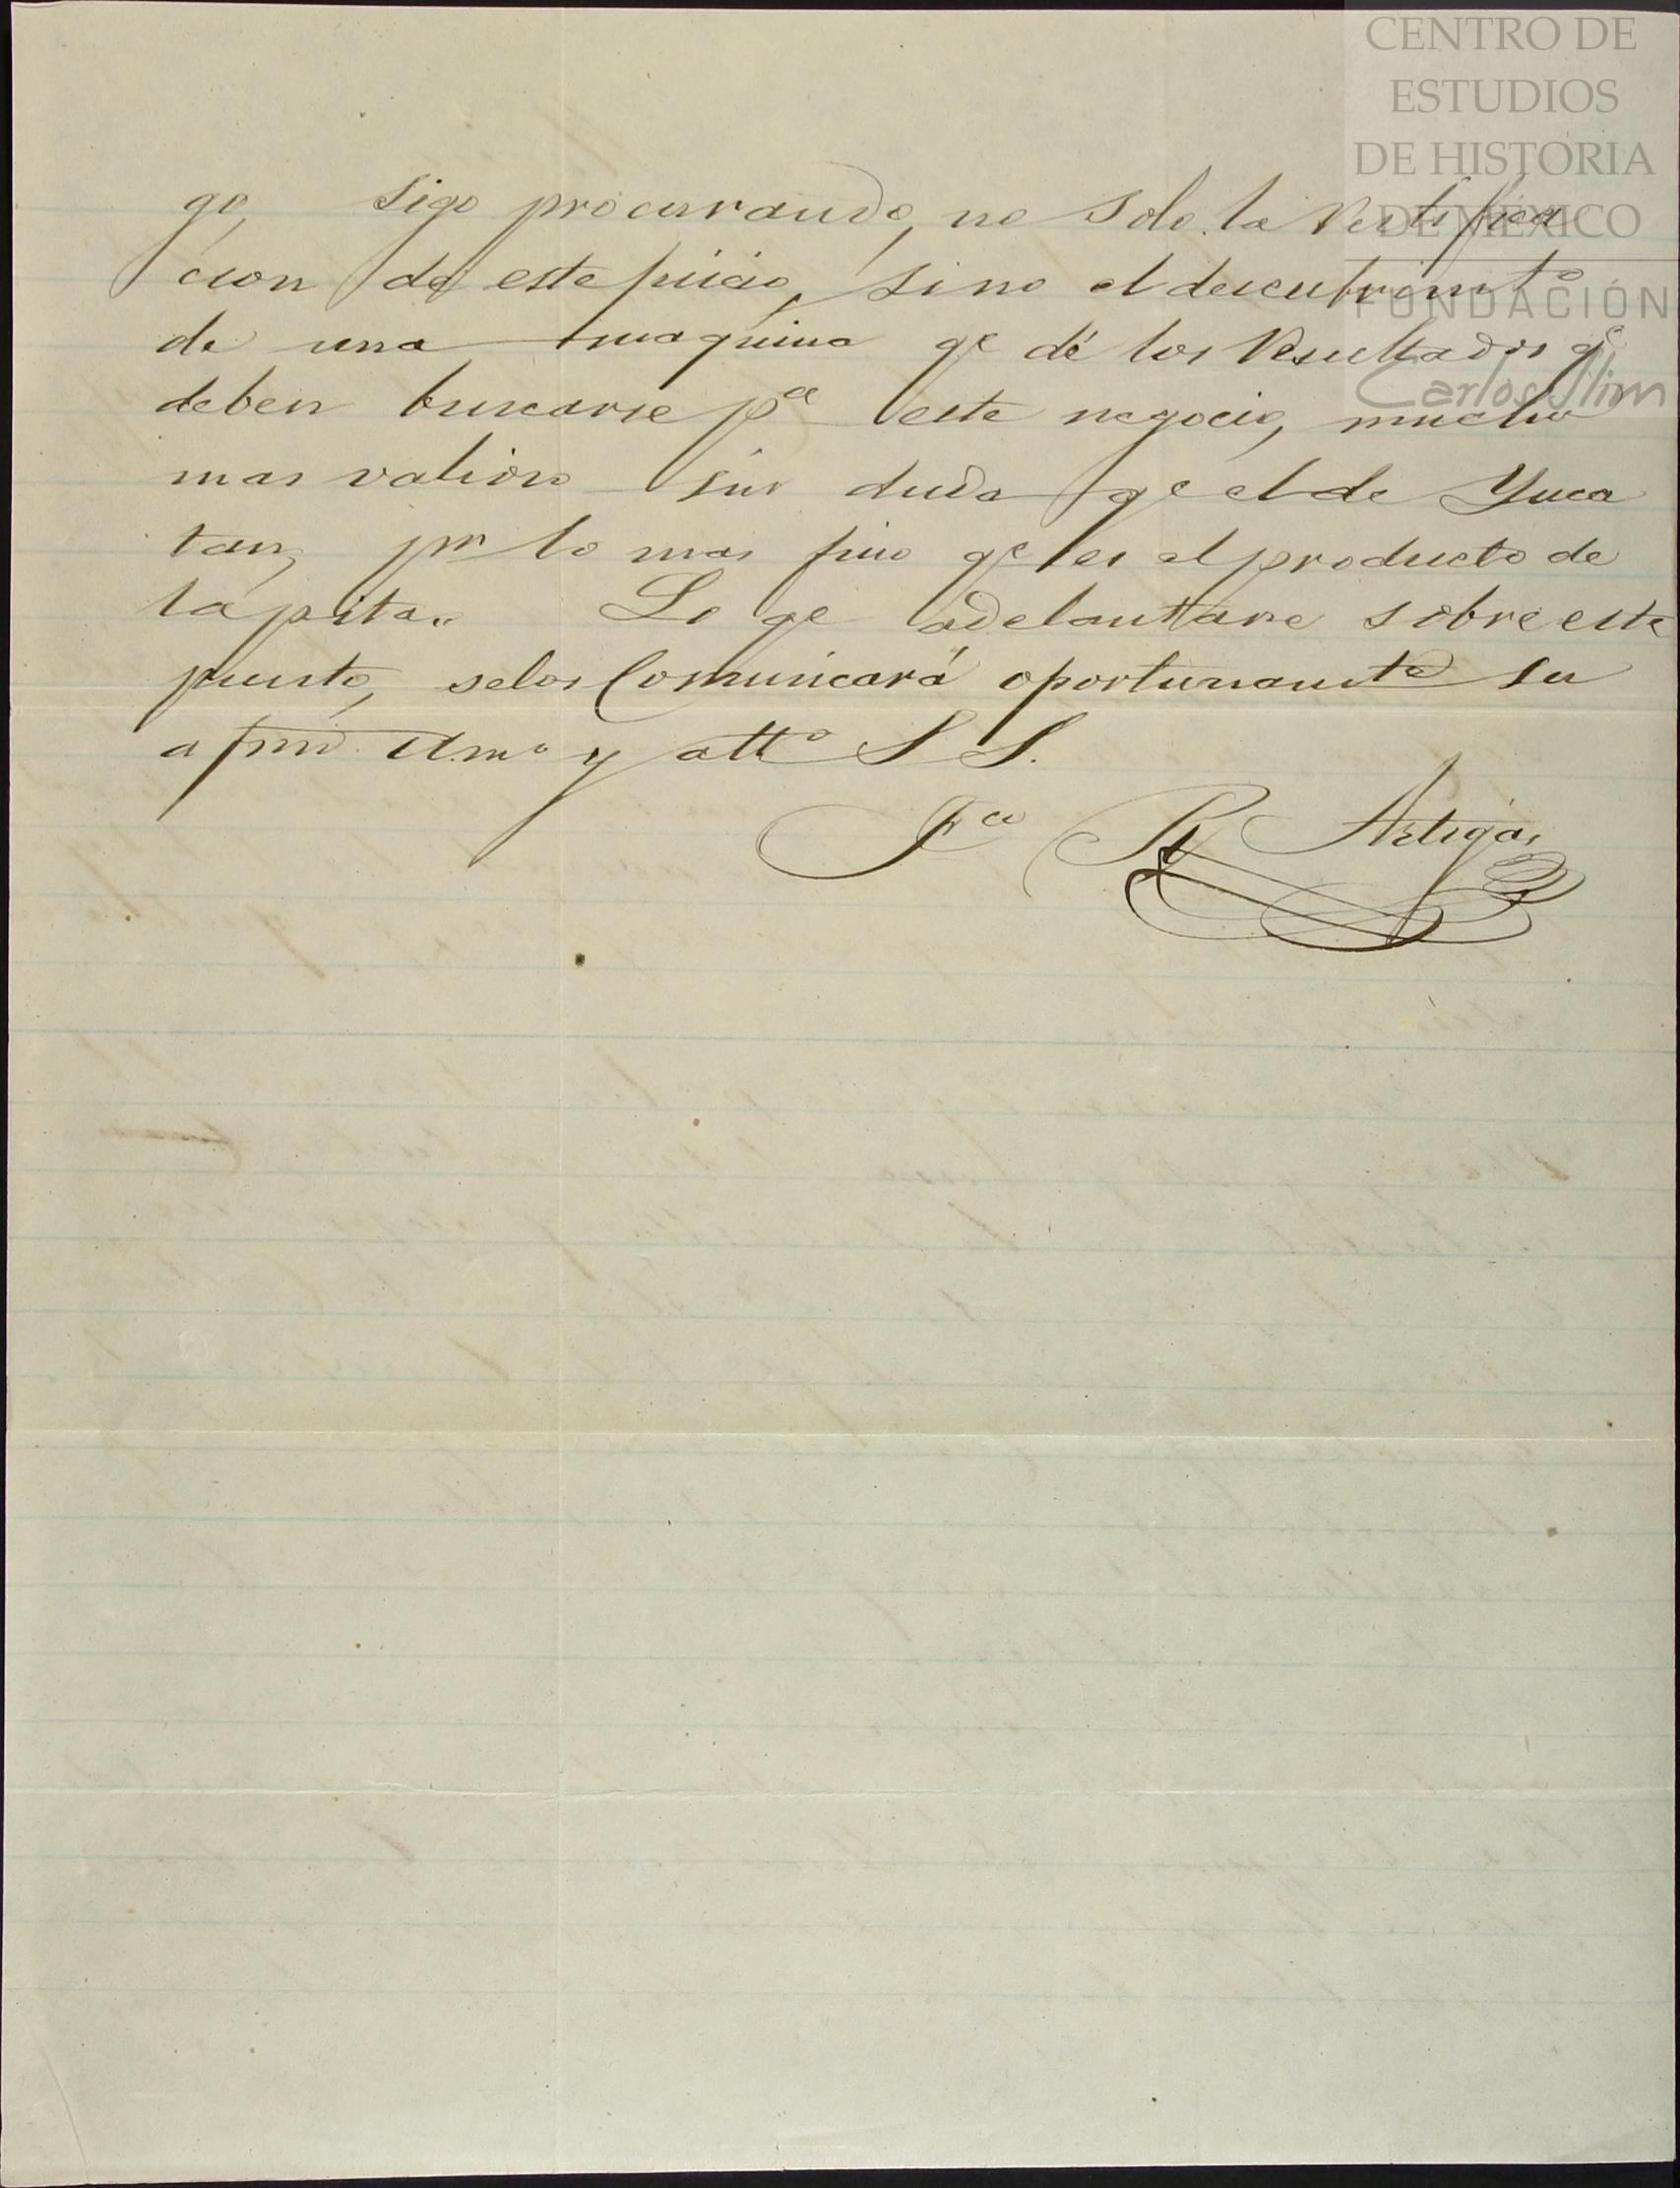 CENTRO DE
ESTUDIOS
DE HISTORIA
DE MÉXICO
FUNDACIÓN
Carlos Slim
go, sigo procurando, no solo la Rectifica
cion de este juicio, sino el descubrimto
de una maquina qe dé los Resultados qe
deben buscarse pa este negocio, mucho
mas valioso sin duda qe el de Yuca
tan, pr lo mas fino qe es el producto de
la pita. Lo qe adelantare sobre este
punto, selos Comunicará oportunamte su
afmo Amo y atto S S.
Fco R Artigas